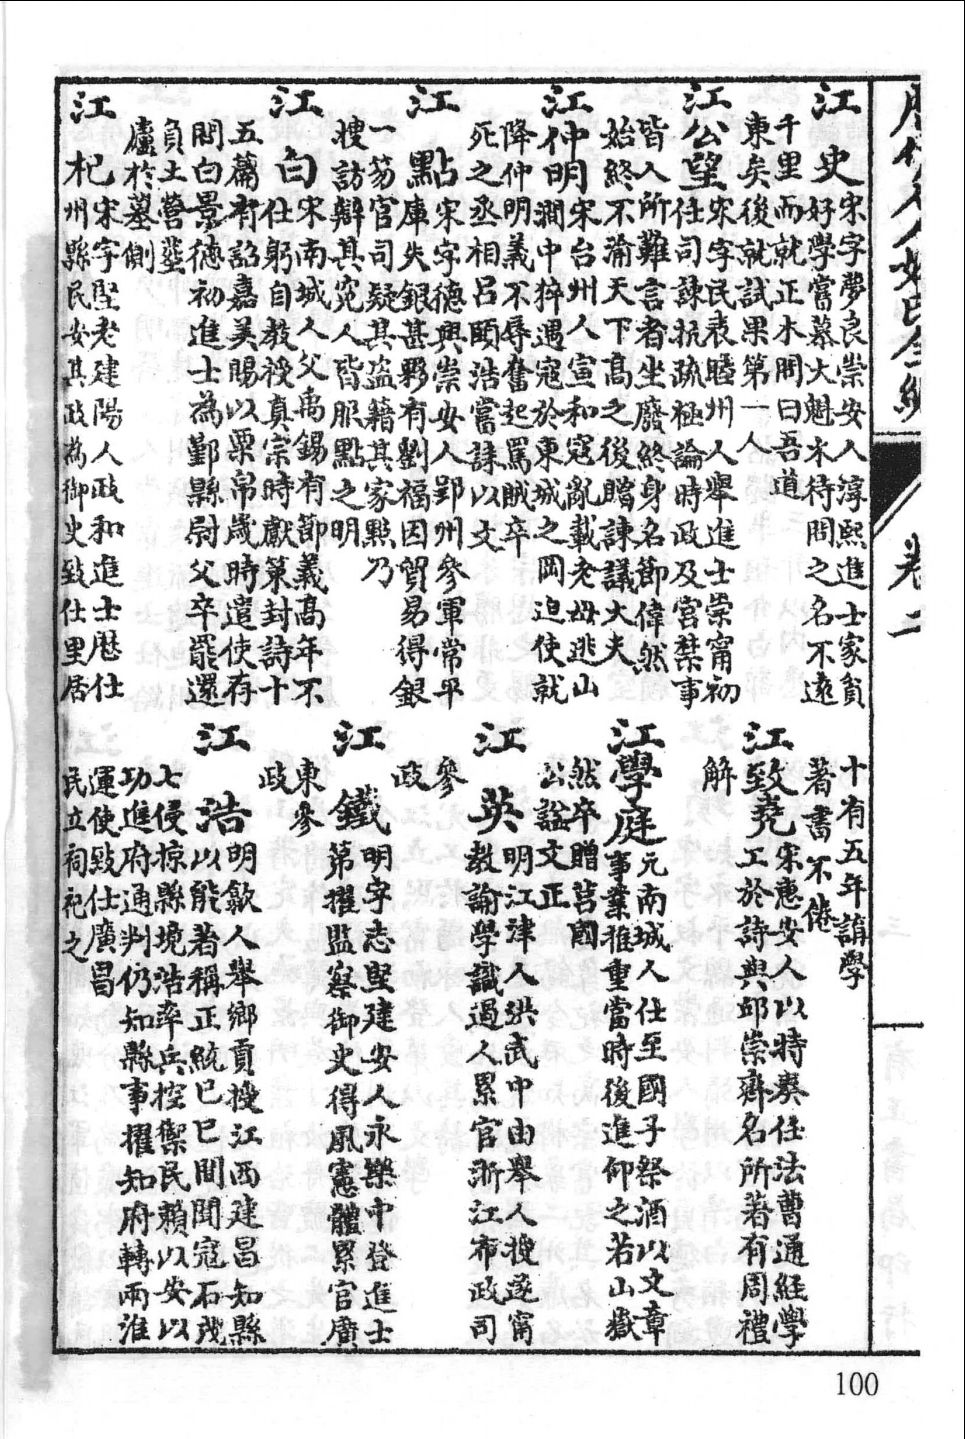 卷二
江史宋字夢良崇安人淳熙進士家貧
好學嘗慕大魁未待問之名不遠
千里而就正木問曰吾道
東矣後就試果第一人
江公望宋字民表睦州人舉進士崇甯初
任司諫抗疏極論時政及宮禁事
皆人所難言者坐廢終身名節偉然
始終不渝天下高之後贈諫議大夫
江仲明宋台州人宣和寇亂載老母逃山
澗中猝遇寇於東城之岡迫使就
降仲明義不辱奮起罵賊卒
死之丞相呂頤浩當誄以文
江點宋字德興崇安人郢州參軍常平
庫失銀甚夥有劉福因貿易得銀
一笏官司疑其盜籍其家點乃
搜訪辯其冤人皆服點之明
江白宋南城人父禹錫有節義高年不
仕躬自教授真宗時獻策封詩十
五篇有詔嘉美賜以粟帛歲時遣使存
問白景德初進士為鄞縣尉父卒罷還
負土營塋
廬於墓側
江杞宋字堅老建陽人政和進士歷仕
州縣民安其政為御史致仕里居
十有五年誦學
著書不倦
江致堯宋惠安人以特奏任法曹通經學
工於詩與邱崇齊名所著有周禮
解
江學庭元南城人仕至國子祭酒以文章
事業推重當時後進仰之若山嶽
然卒贈莒國
公諡文正
江英明江津人洪武中由舉人授遂甯
教諭學識過人累官浙江布政司
參
政
江鐵明字志堅建安人永樂中登進士
第擢監察御史得風憲體累官廣
東參
政
江浩明歙人舉鄉貢授江西建昌知縣
以能著稱正統己巳間閩寇石茂
七侵掠縣境浩率兵控禦民賴以安以
功進府通判仍知縣事擢知府轉兩淮
運使致仕廣昌
民立祠祀之
100